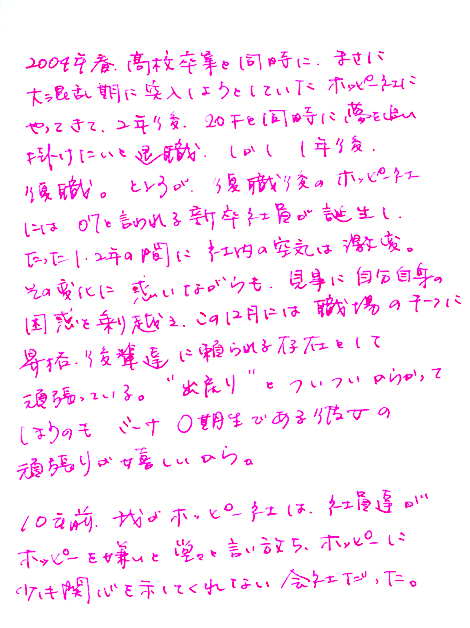 2004年春、高校卒業と同時に、まさに
大混乱期に突入しようとしていたホッピー社に
やってきて、2年後、20才と同時に夢を追い
掛けたいと退職、しかし1年後、
復職。ところが、復職後のホッピー社
には07と言われる新卒社員が誕生し、
たった1、2年の間に社内の空気は激変。
その変化に惑いながらも、見事に自分自身の
困惑を乗り越え、この12月には職場のチーフに
昇格、後輩達に頼られる存在として
頑張っている。"出戻り"とついついからかって
しまうのも 0期生である彼女の
頑張りが嬉しいから。
10年前、我がホッピー社は、社員達が
ホッピーを嫌いと堂々と言い放ち、ホッピーに
少しも関心を示してくれてない会社だった。